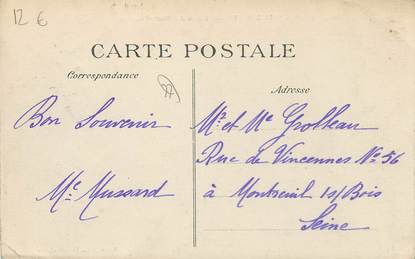 12 €
CARTE POSTALE
Correspondance
Adresse
Bon Souvenir
Me Mussard
Mr et Me Grolleau
Rue de Vincennes No 56
à Montreuil s/Bois
Seine